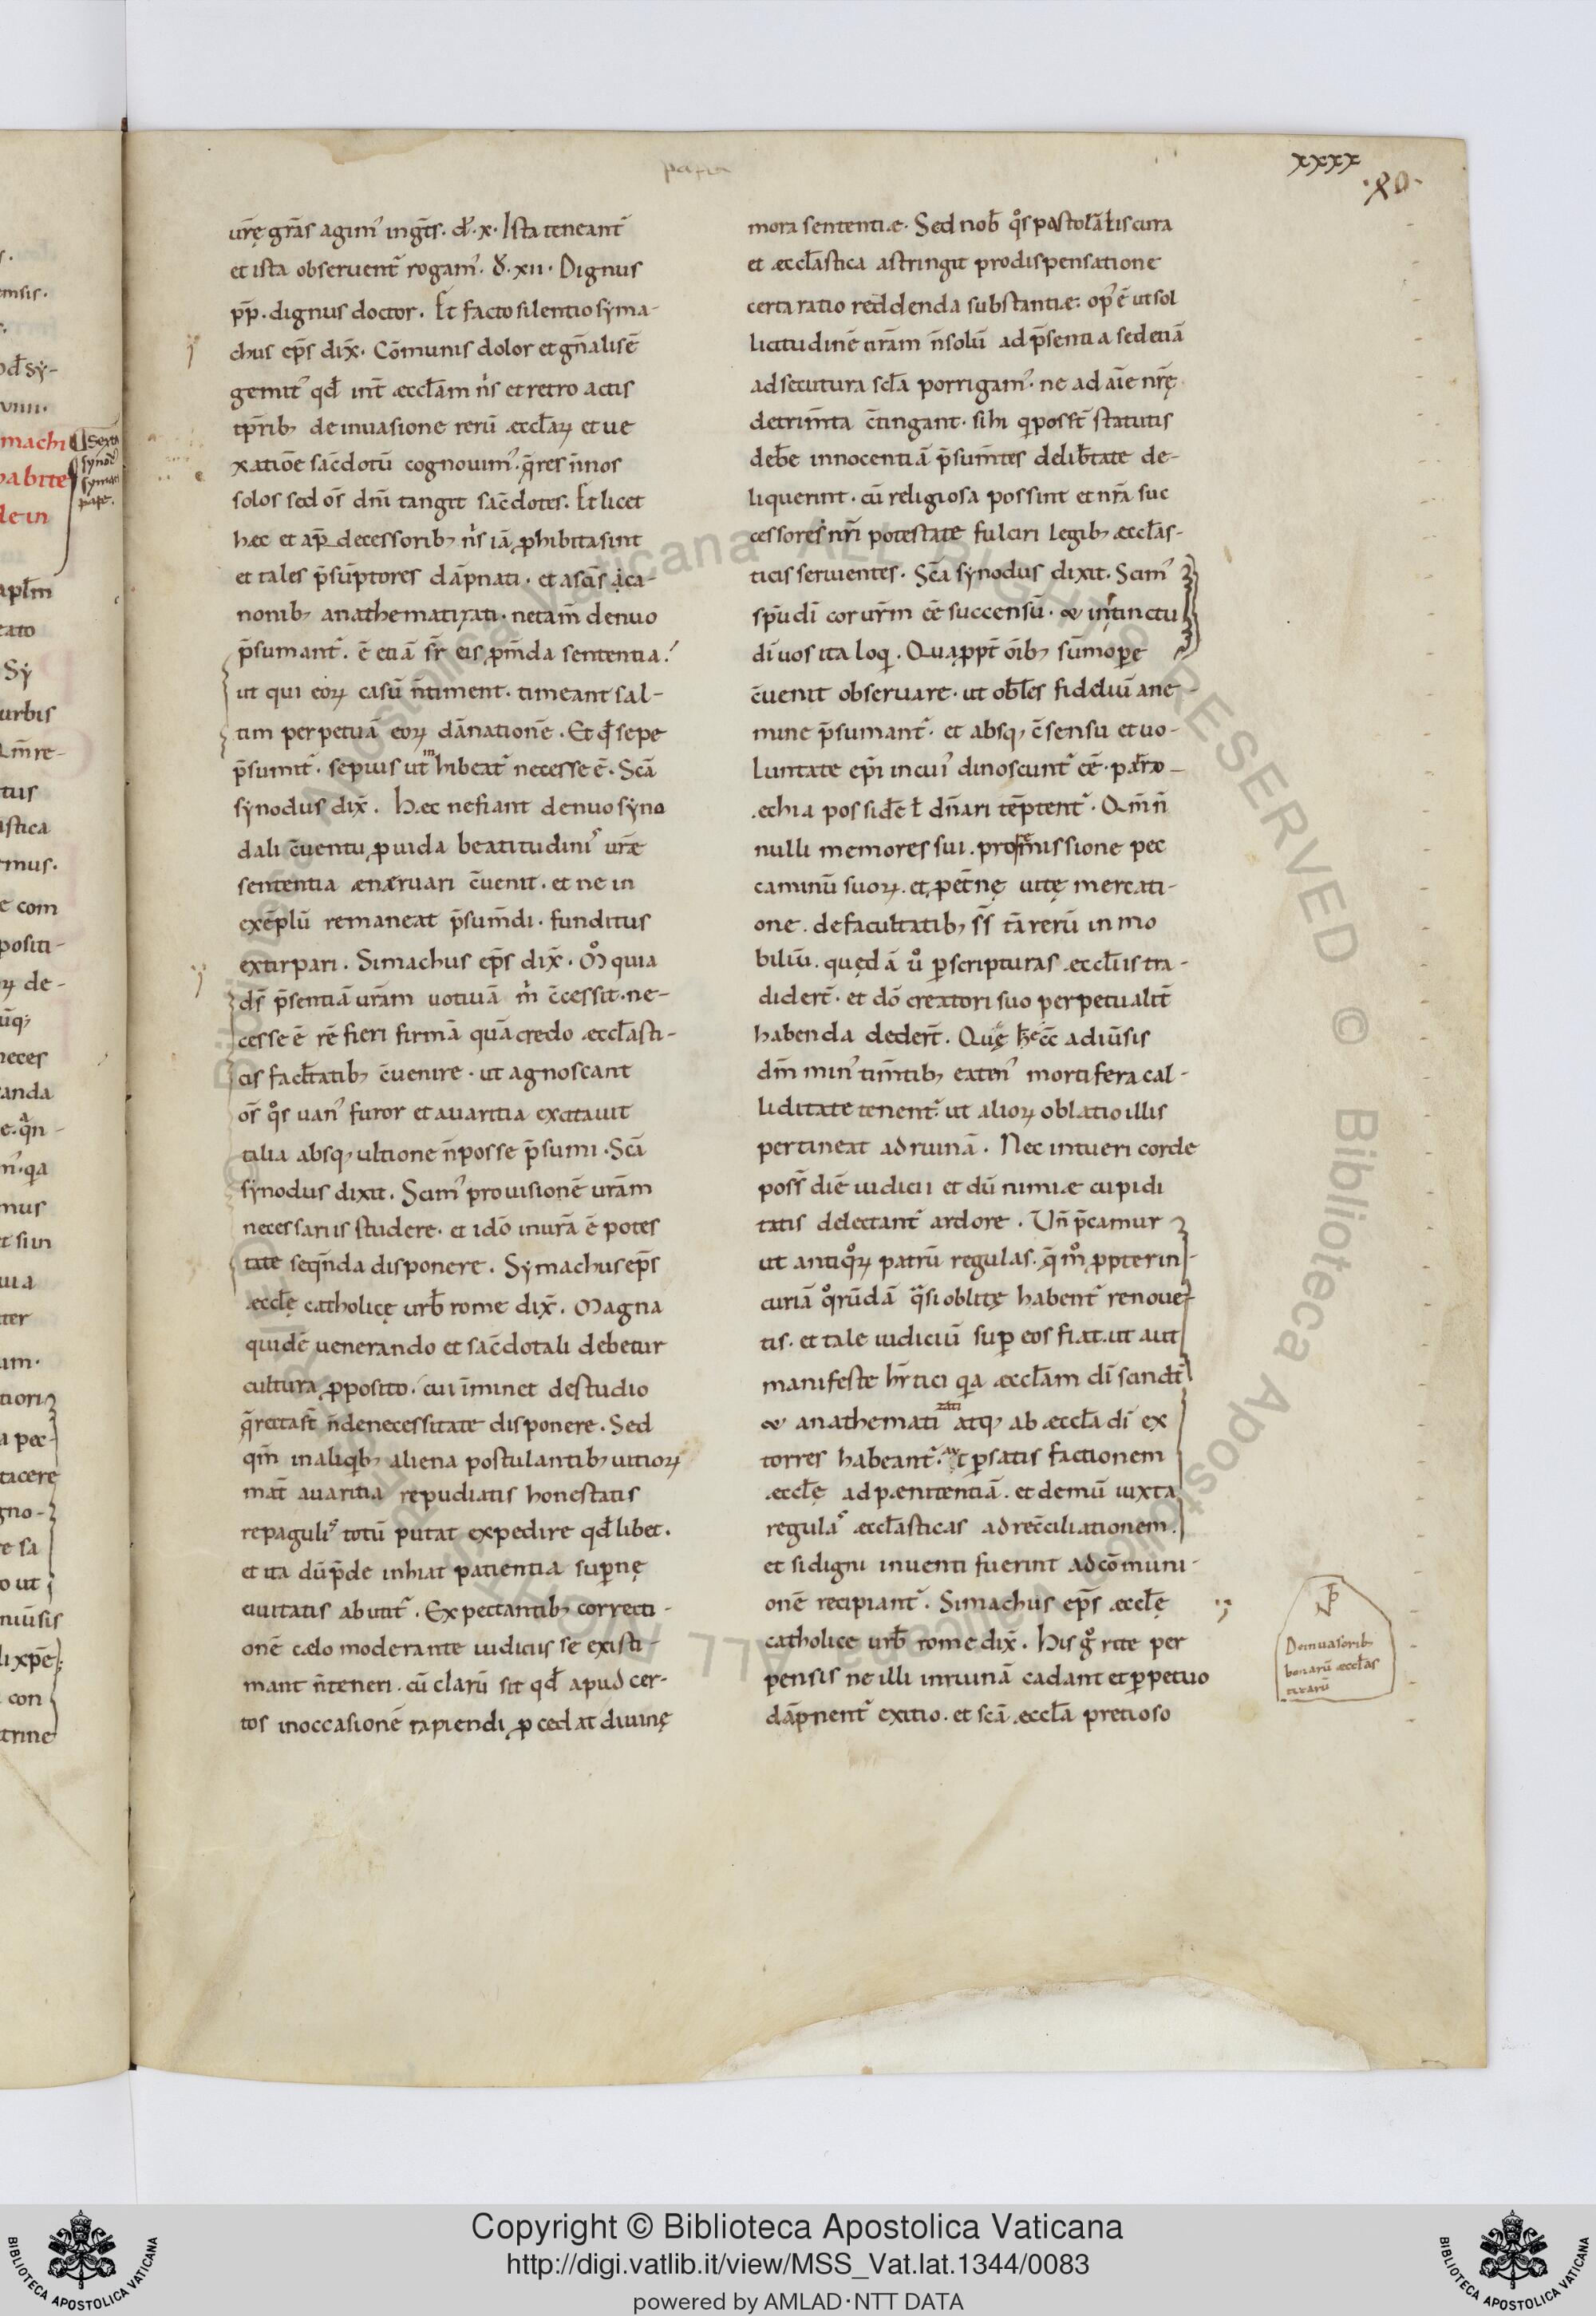 xxxx
·40·
urę grās agim' ingēs. d'. x. Ista teneant᷑
et ista obseruent᷑ rogam'. d'. xii. Dignus
pp̄. dignus doctor. Et facto silentio syma-
chus ep̄s dix̄. Cōmunis dolor et gn̄alis ē
gemit' qd̄ int̄ æccl̄am nr̄s et retro actis
tp̄rib; de inuasione rerū æccl̄aꝝ et ue
xatiōe sac̄dotū cognouim'. q̄ res n̄ nos
solos sed os̄ dn̄i tangit sac̄dotes. Et licet
hæc et ap̄ decessorib; nr̄s iā ꝓhibita sint
et tales p̄sūptores dāpnati. et a sc̄is ca-
nonib; anathematizati. ne tam̄ denuo
p̄sumant᷑. ē etiā sr̄ eis ꝓm̄da sententia.
ut qui eoꝝ casū n̄ timent. timeant sal-
tim perpetuā eoꝝ dānationē. Et qd̄ sepe
p̄sumit᷑. sepius ut inhibeat᷑ necesse ē. Scā
synodus dix̄. Hæc ne fiant denuo syno
dali c̄uentu ꝓuida beatitudinis uræ
sententia ænæruari c̄uenit. et ne in
exēplū remaneat p̄sum̄di. funditus
extirpari. Simachus ep̄s dix̄. Mº quia
ds̄ p̄sentiā urām uotiuā m̄ c̄cessit. ne-
cesse ē rē fieri firmā quā credo æccl̄asti-
cis facl̄tatib; c̄uenire. ut agnoscant
os̄ qºs uan' furor et auaritia excitauit
talia absq; ultione n̄ posse p̄sumi. Scā
synodus dixit. Scim' prouisionē urām
necessariis studere. et idō in urā ē potes
tate seqn̄da disponere. Symachus ep̄s
æccl̄ę catholicę urb̄ rome dix̄. Magna
quidē uenerando et sac̄dotali debetur
cultura ꝓposito. cui īminet de studio
q̄ recta st̄ n̄ de necessitate disponere. Sed
qm̄ in aliqib; aliena postulantib; uitioꝝ
mat̄ auaritia repudiatis honestatis
repagulis totū putat expedire qd̄ libet.
et ita dū p̄de inhiat patientia sup̄nę
ciuitatis abutit᷑. Expectantib; correcti-
onē cælo moderante iudiciis se existi-
mant n̄ teneri. cū clarū sit qd̄ apud cer-
tos in occasionē rapiendi ꝓcedat diuinę
mora sententiæ. Sed nob̄ qºs pastoralis cura
et æccl̄astica astringit pro dispensatione
certa ratio reddenda substantiæ. op' ē ut sol
licitudinē urām n̄ solū ad p̄sentia sed etiā
ad secutura scl̄a porrigam'. ne ad aīe nrę
detrim̄ta c̄tingant. si hi qi poss̄t statutis
deb̄e innocentiā p̄sum̄tes delib̄tate de-
liquerint. cū religiosa possint et nrā suc
cessores nr̄i potestate fulciri legib; æccl̄as-
ticis seruientes. Scā synodus dixit. Scim'
sp̄u dī cor urm ēē succensū. & instinctu
dī uos ita loqi. Quapp̄t oīb; sūmop̄e
c̄uenit obseruare. ut obl̄es fideliū a ne-
mine p̄sumant᷑. et absq; c̄sensu et uo-
luntate ep̄i in cui' dinoscunt᷑ ēē. parro-
æchia possid̄e l̄ dn̄ari tēptent᷑. Qm̄ n̄
nulli memores sui. pro remissione pec
caminū suoꝝ. et ꝓ et̄nę uitę mercati-
one. de facultatib; ss̄ tā rerū inmo
biliū. quędā uº p̄ scripturas æccl̄iis tra-
didert̄. et dō creatori suo perpetualit̄
habenda dedert̄. Quę hęc c̄ adiūsis
dm̄ min' tim̄tib; eaten' mortifera cal-
liditate tenent᷑ ut alioꝝ oblatio illis
pertineat ad ruinā. Nec intueri corde
poss̄ diē iudicii et dū nimiæ cupidi
tatis delectant᷑ ardore. Un̄ p̄camur
ut antiqºꝝ patrū regulas. q̄ mº ꝓpter in-
curiā qºrūdā qªsi oblitę habent᷑ renoue-
tis. et tale iudiciū sup eos fiat. ut aut
manifeste hr̄tici qia æccl̄am dī scindt̄
& anathematizati atq; ab æccl̄a dī ex
torres habeant᷑. aut p̄ satisfactionem
æccl̄ę ad pænitentiā. et demū iuxta
regulas æccl̄asticas ad rec̄ciliationem.
et si digni inuenti fuerint ad cōmuni-
onē recipiant᷑. Simachus ep̄s æccl̄ę
catholice urb̄ rome dix̄. His gº rite per
pensis ne illi in ruinā cadant et p̄petuo
dāpnent᷑ exitio. et scā æccl̄a pretioso
De inuasorib;
bonarū æccl̄as
ticarū
Copyright © Biblioteca Apostolica Vaticana
http://digi.vatlib.it/view/MSS_Vat.lat.1344/0083
powered by AMLAD·NTT DATA
BIBLIOTECA APOSTOLICA VATICANA
BIBLIOTECA APOSTOLICA VATICANA